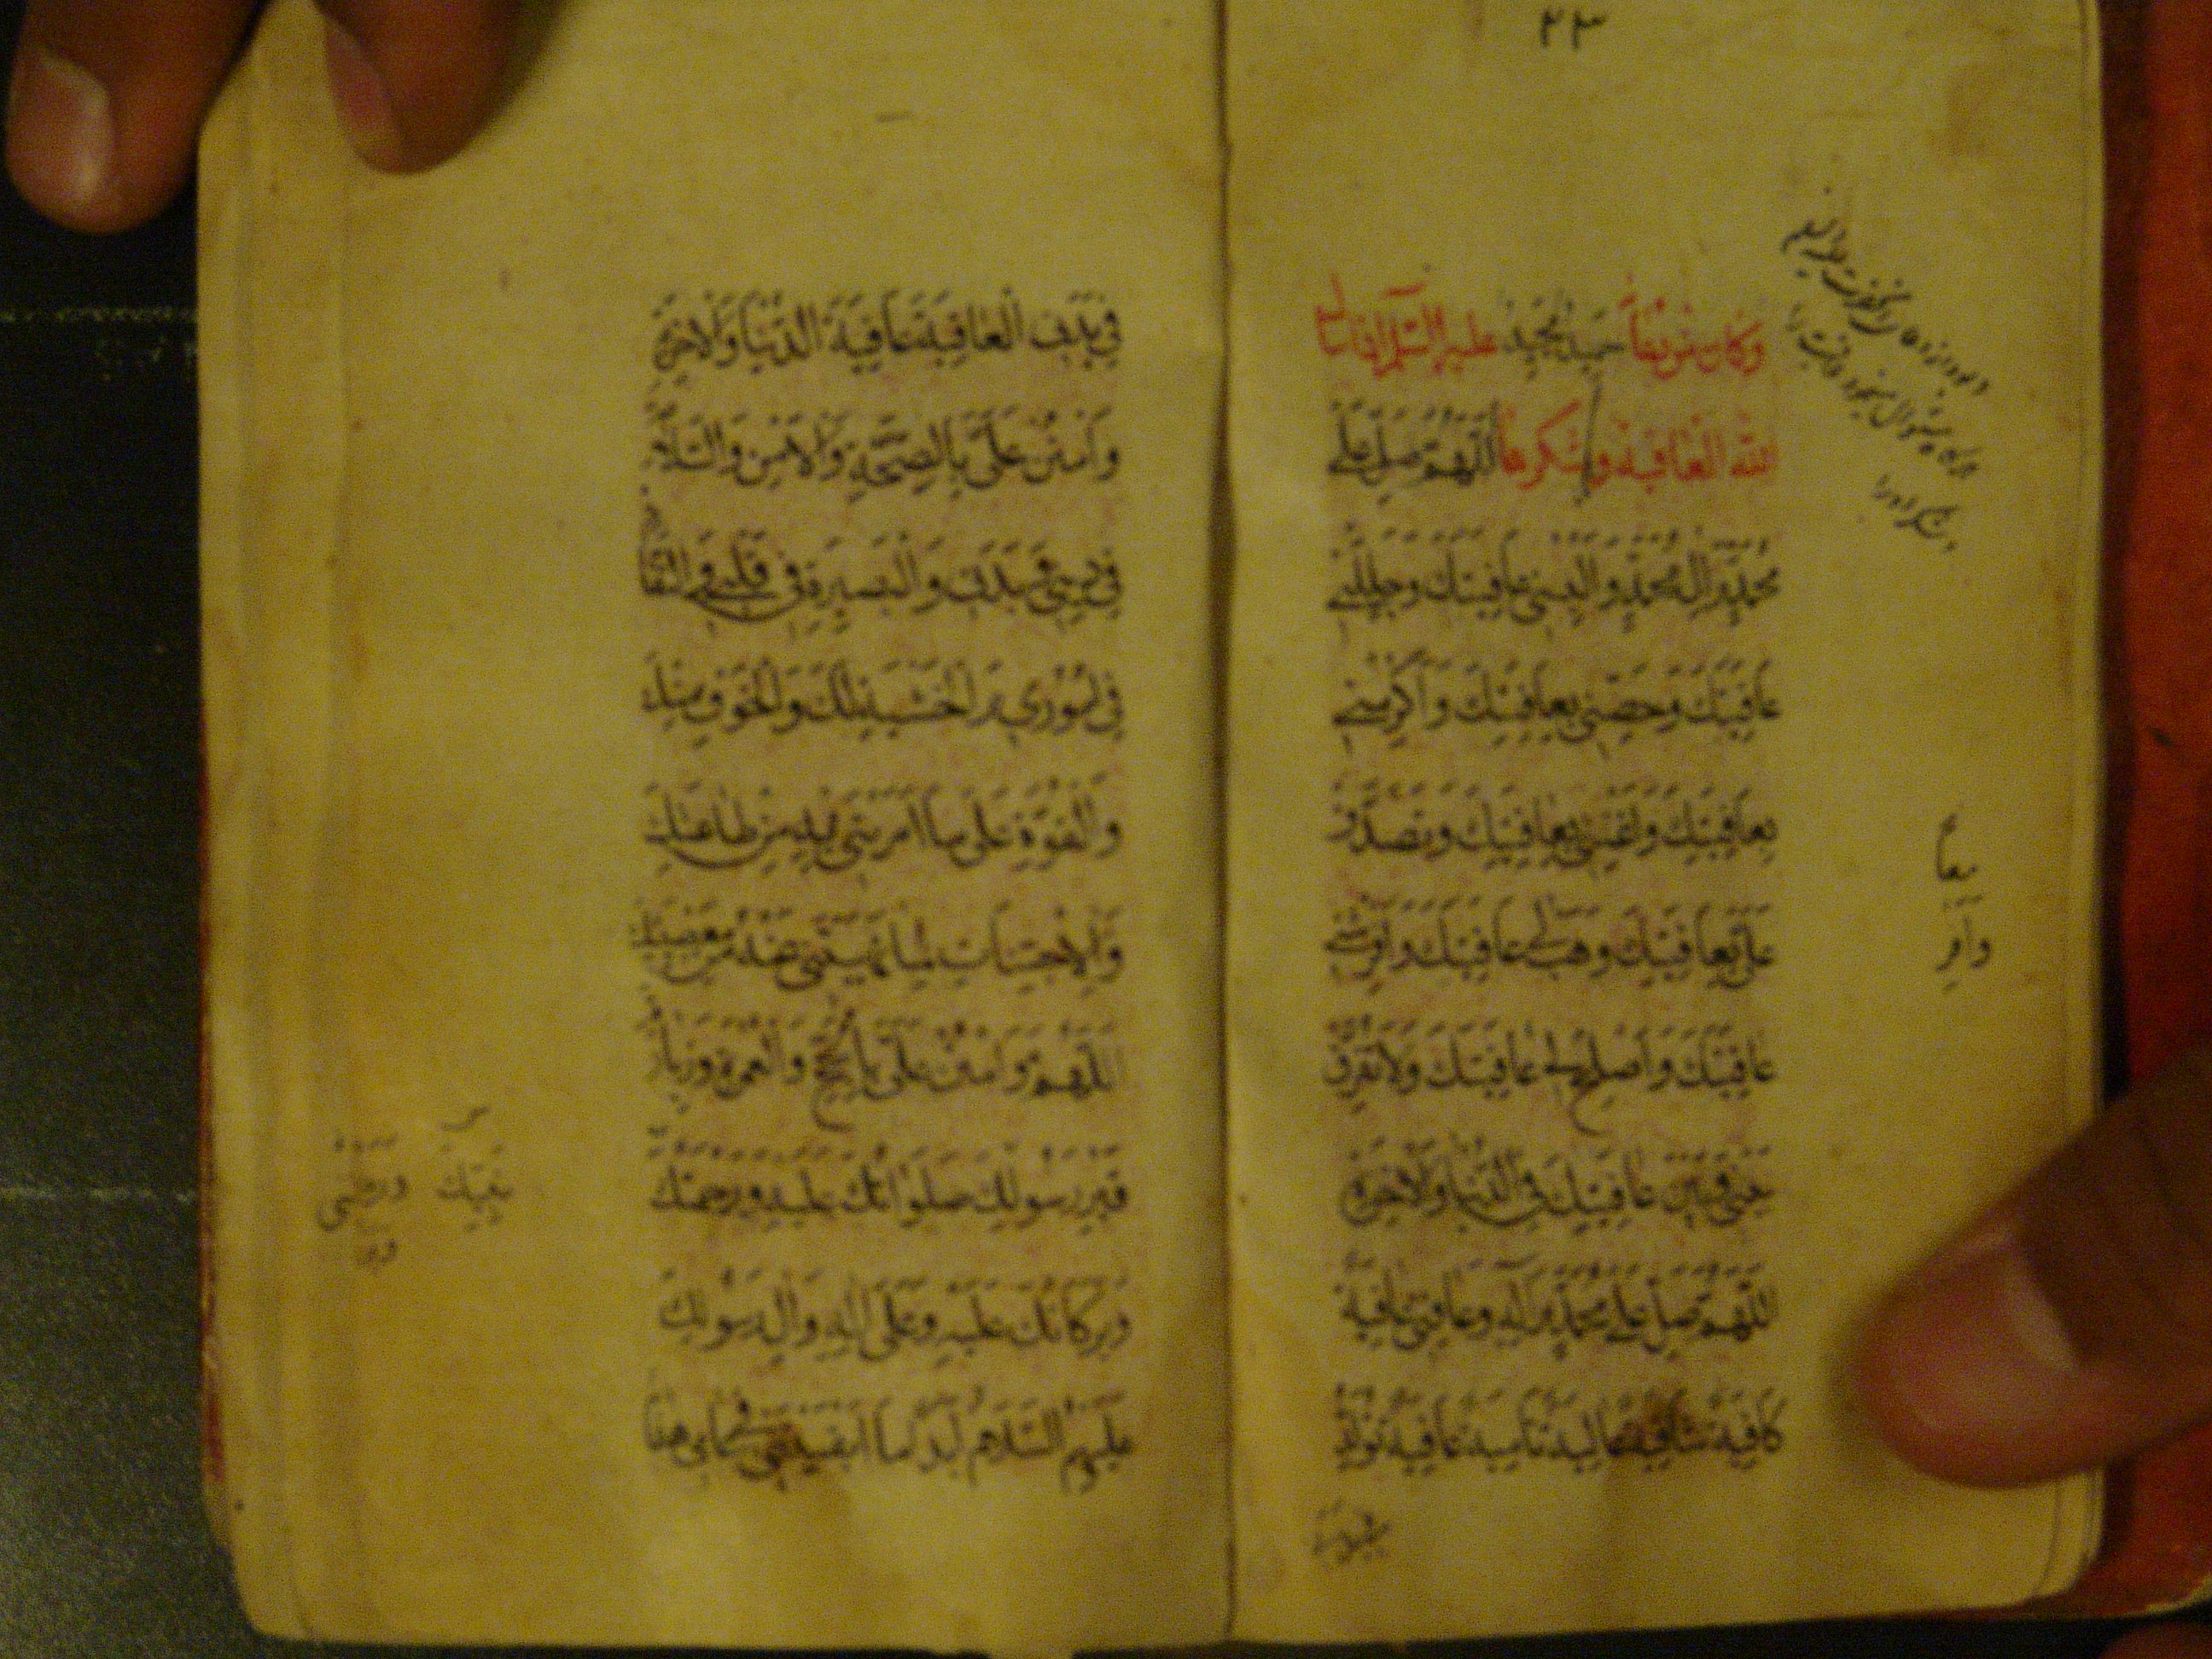 ٢٣
وكان من دعائه حميد مجيد عليه السلام اذا سأل
الله العافية وشكرها اللهم صل على
محمد وآله محمد والبسني عافيتك وجللني
عافيتك وحصني بعافيتك واكرمني
بعافيتك واغنني بعافيتك وتصدق
علي بعافيتك وهب لي عافيتك وافرشني
عافيتك واصلح لي عافيتك ولا تفرق
بيني وبين عافيتك في الدنيا والآخرة
اللهم صل على محمد وآله وعافني عافية
كافية شافية عالية نامية عافية تولد
في بدني العافية عافية الدنيا والآخرة
وامنن علي بالصحة والأمن والسلامة
في ديني وبدني والبصيرة في قلبي والنفا
في اموري والخشية لك والخوف منك
والقوة على ما امرتني به من طاعتك
والاجتناب لما نهيتني عنه من معصيتك
اللهم وامنن علي بالحج والعمرة وزيارة
قبر رسولك صلواتك عليه ورحمتك
وبركاتك عليه وعلى آله وآل رسولك
عليهم السلام ابدا ما ابقيتني في عامي هذا